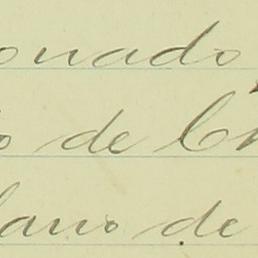 onado
o de Ch
lano de